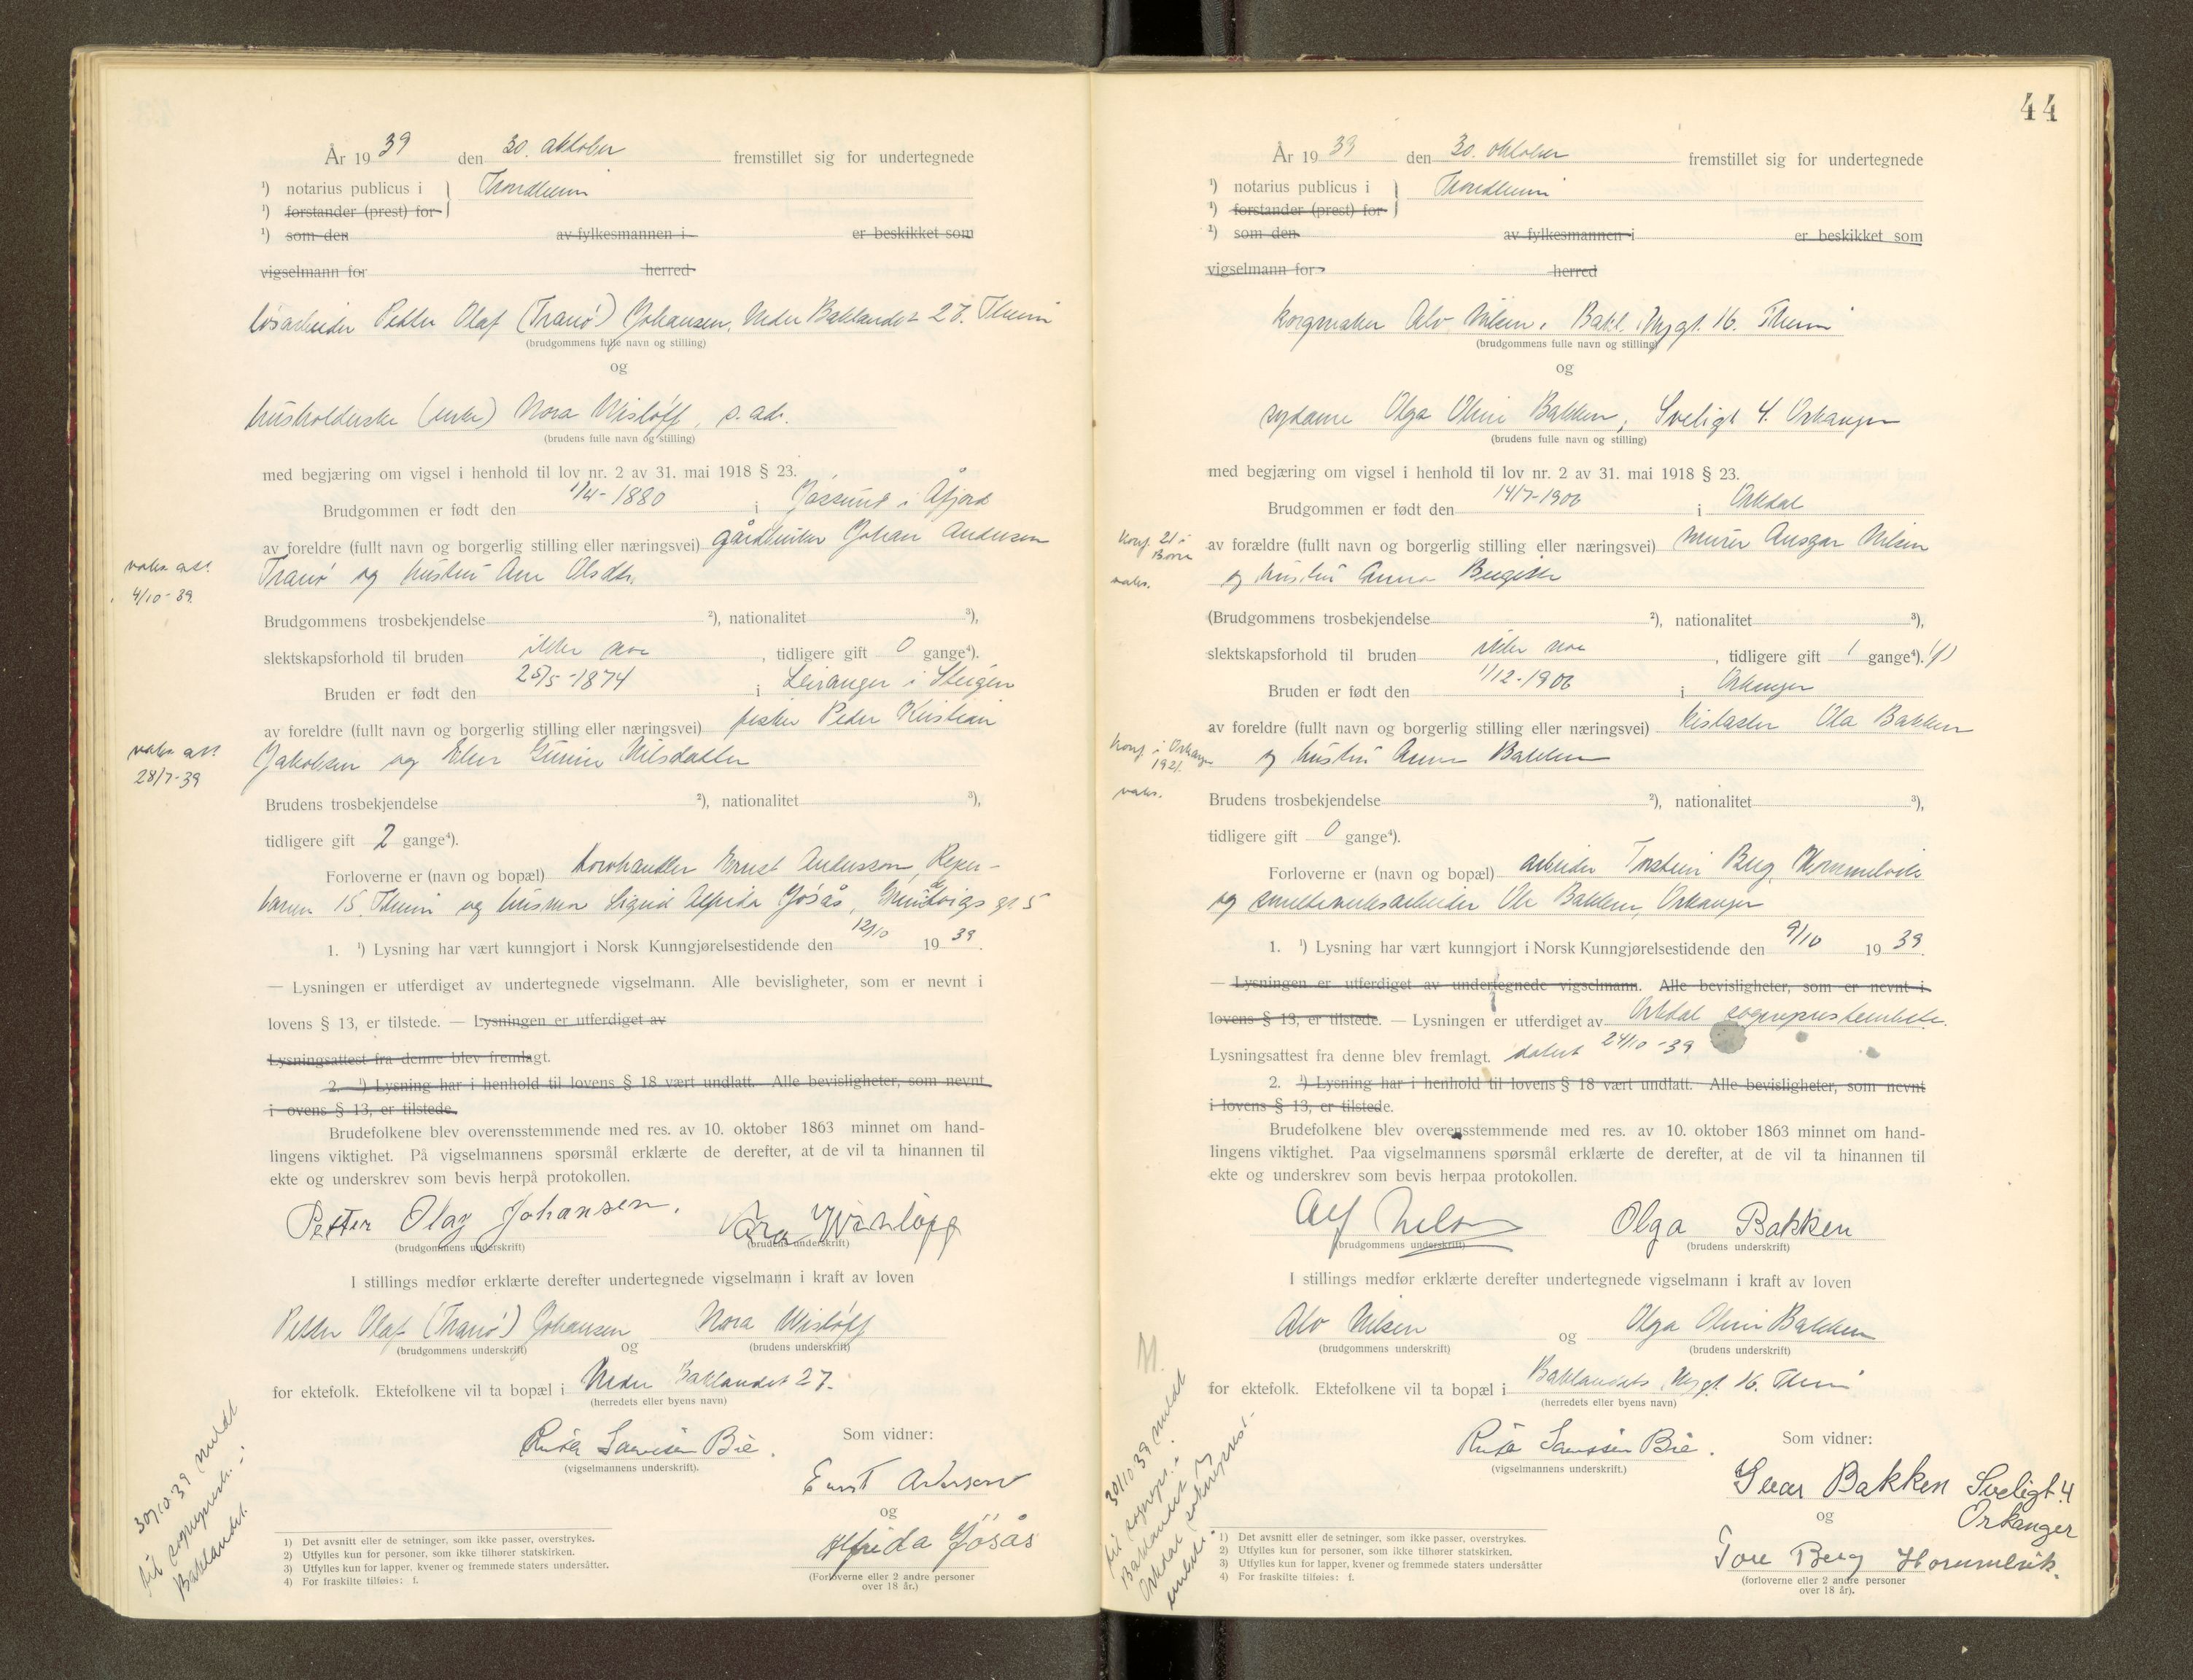 År 1939 den 30. oktober fremstillet sig for undertegnede
¹) notarius publicus i } Trondheim
¹) forstander (prest) for
¹) som den av fylkesmannen i er beskikket som
vigselmann for herred
løsarbeider Petter Olaf (Tranø) Johansen, Nedre Baklandet 27. Theim
(brudgommens fulle navn og stilling)
og
husholderske (enke) Nora Wisløff, s. adr.
(brudens fulle navn og stilling)
med begjæring om vigsel i henhold til lov nr. 2 av 31. mai 1918 § 23.
Brudgommen er født den 1/4-1880 i Jøssund i Åfjord
av foreldre (fullt navn og borgerlig stilling eller næringsvei) gårdbruker Johan Andersen
vaks. att. 4/10-39.
Tranø og hustru Ane Olsdtr.
Brudgommens trosbekjendelse ²), nationalitet ³),
slektskapsforhold til bruden ikke noe, tidligere gift 0 gange⁴).
Bruden er født den 25/5-1874 i Leiranger i Steigen
av foreldre (fullt navn og borgerlig stilling eller næringsvei) fisker Peder Kristian
vaks. att. 28/7-39
Jakobsen og Elen Nilsdatter
Brudens trosbekjendelse ²), nationalitet ³),
tidligere gift 2 gange⁴).
Forloverne er (navn og bopæl) Ernst Andersson, Reper-
banen 15, Theim og husmor Sigrid Alfrida Jøsås, Grundtvigs gt 5
1. ¹) Lysning har vært kunngjort i Norsk Kunngjørelsestidende den 12/10 1939.
— Lysningen er utferdiget av undertegnede vigselmann. Alle bevisligheter, som er nevnt i
lovens § 13, er tilstede. — Lysningen er utferdiget av
Lysningsattest fra denne blev fremlagt.
2. ¹) Lysning har i henhold til lovens § 18 vært undlatt. Alle bevisligheter, som nevnt
i ovens § 13, er tilstede.
Brudefolkene blev overensstemmende med res. av 10. oktober 1863 minnet om hand-
lingens viktighet. På vigselmannens spørsmål erklærte de derefter, at de vil ta hinannen til
ekte og underskrev som bevis herpå protokollen.
Petter Olaf Johansen. Nora Wishløff
(brudgommens underskrift) (brudens underskrift)
I stillings medfør erklærte derefter undertegnede vigselmann i kraft av loven
Petter Olaf (Tranø) Johansen og Nora Wisløff
(brudgommens underskrift) (brudens underskrift)
for ektefolk. Ektefolkene vil ta bopæl i Nedre Baklandet 27.
(herredets eller byens navn)
Bie.
(vigselmannens underskrift).
Som vidner:
Ernst Anderson
og
Alfrida Jøsås
(Forloverne eller 2 andre personer
over 18 år.)
30/10 39 meldt
til sogneprest. i
Baklandet.
1) Det avsnitt eller de setninger, som ikke passer, overstrykes.
2) Utfylles kun for personer, som ikke tilhører statskirken.
3) Utfylles kun for lapper, kvener og fremmede staters undersåtter.
4) For fraskilte tilføies: f.
44
År 1939 den 30. oktober fremstillet sig for undertegnede
¹) notarius publicus i } Trondheim
¹) forstander (prest) for
¹) som den av fylkesmannen i er beskikket som
vigselmann for herred
korgmaker Alv Nilsen, Bakl. Nygt. 16. Theim
(brudgommens fulle navn og stilling)
og
sydame Olga Oline Bakken, Sveligt 4. Orkanger
(brudens fulle navn og stilling)
med begjæring om vigsel i henhold til lov nr. 2 av 31. mai 1918 § 23.
Brudgommen er født den 14/7-1906 i Orkdal
konf. 21 i Børsa
vaks.
av forældre (fullt navn og borgerlig stilling eller næringsvei) murer Ansgar Nilsen
og hustru Anna Birgitte
(Brudgommens trosbekjendelse ²), nationalitet ³),
slektskapsforhold til bruden ikke noe, tidligere gift 1 gange⁴). (f)
Bruden er født den 1/12-1906 i Orkanger
av foreldre (fullt navn og borgerlig stilling eller næringsvei) Ola Bakken
konf. i Orkanger 1921.
vaks.
og hustru Anne Bakken
Brudens trosbekjendelse ²), nationalitet ³),
tidligere gift 0 gange⁴).
Forloverne er (navn og bopæl) arbeider Torstein Berg, Hommelvik
og smelteverksarbeider Ole Bakken, Orkanger
1. ¹) Lysning har vært kunngjort i Norsk Kunngjørelsestidende den 9/10 1939.
— Lysningen er utferdiget av undertegnede vigselmann. Alle bevisligheter, som er nevnt i
lovens § 13, er tilstede. — Lysningen er utferdiget av Orkdal sogneprestembede.
Lysningsattest fra denne blev fremlagt. datert 24/10-39
2. ¹) Lysning har i henhold til lovens § 18 vært undlatt. Alle bevisligheter, som nevnt
i lovens § 13, er tilstede.
Brudefolkene blev overensstemmende med res. av 10. oktober 1863 minnet om hand-
lingens viktighet. Paa vigselmannens spørsmål erklærte de derefter, at de vil ta hinannen til
ekte og underskrev som bevis herpaa protokollen.
Alf Nilsen Olga Bakken
(brudgommens underskrift) (brudens underskrift)
I stillings medfør erklærte derefter undertegnede vigselmann i kraft av loven
Alv Nilsen og Olga Oline Bakken
(brudgommens underskrift) (brudens underskrift)
for ektefolk. Ektefolkene vil ta bopæl i Baklandets Nygt. 16. Theim
(herredets eller byens navn)
Bie.
(vigselmannens underskrift.)
Som vidner:
Ivar Bakken Sveligt. 4
Orkanger
og
Tore Berg Hommelvik.
(forloverne eller 2 andre personer
over 18 år).
M.
30/10 39 meldt
til sognepr. i
Baklandet og
Orkdal sokneprest-
embede.
1) Det avsnitt eller de setninger, som ikke passer, overstrykes.
2) Utfylles kun for personer, som ikke tilhører statskirken.
3) Utfylles kun for lapper, kvener og fremmede staters undersåtter
4) For fraskilte tilføies: f.